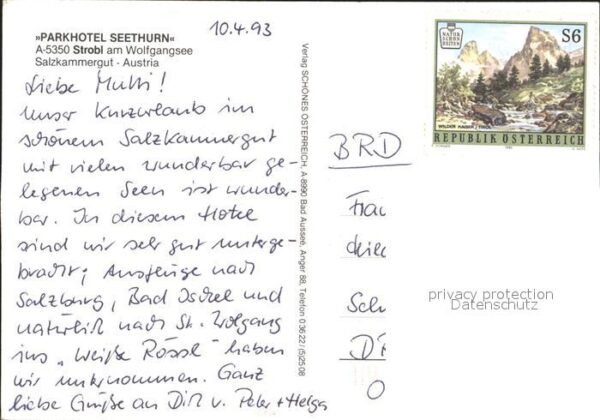 »PARKHOTEL SEETHURN«
A-5350 Strobl am Wolfgangsee
Salzkammergut - Austria
10.4.93
Liebe Mutti!
Unser Kurzurlaub im
schönem Salzkammergut
mit vielen wunderbar ge-
legenen Seen ist wunder-
bar. In diesem Hotel
sind wir sehr gut unterge-
bracht; Ausflüge nach
Salzburg, Bad Ischel und
natürlich nach St. Wolfgang
ins „Weiße Rössl" haben
wir unternommen. Ganz
liebe Grüße an Dich v. Peter + Helga
Verlag SCHÖNES ÖSTERREICH, A 8990 Bad Aussee, Anger 88, Telefon 0 36 22 / (5)25 08
NATUR
SCHÖN
HEITEN
S6
WILDER KAISER / TIROL
REPUBLIK ÖSTERREICH
BRD
Frau
Sch
privacy protection
Datenschutz